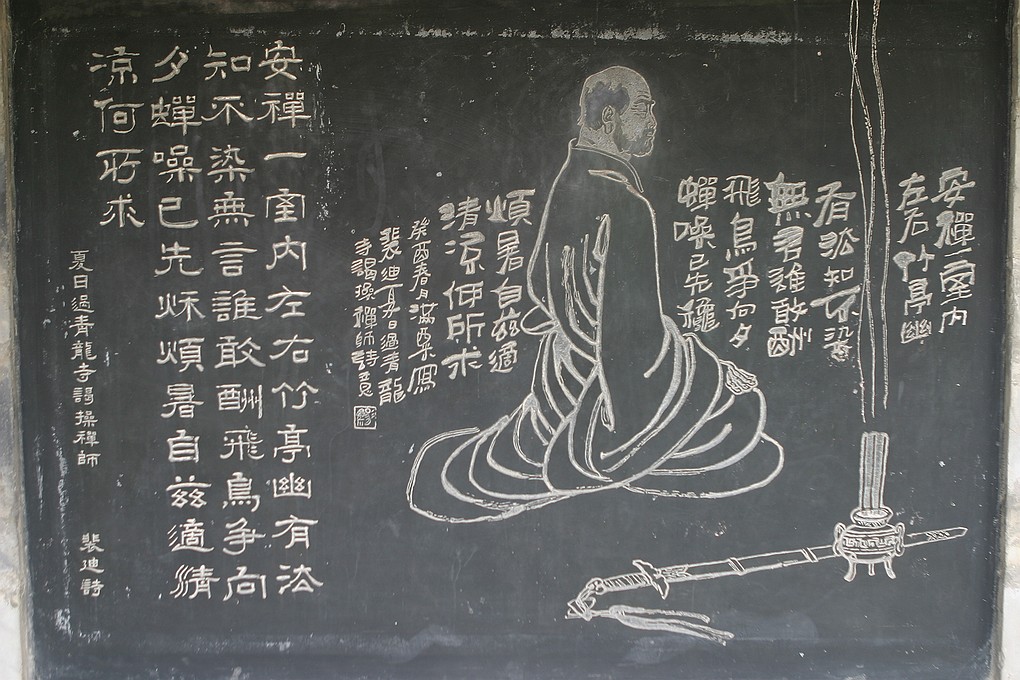 安禪一室内
左右竹亭幽
有法知不染
無言誰敢酬
飛鳥爭向夕
蟬噪已先穐
煩暑自茲適
清涼何所求
癸酉春月寫
裴迪夏日過青龍
寺謁操禪師詩意
安禪一室内左右竹亭幽有法
知不染無言誰敢酬飛鳥爭向
夕蟬噪已先秌煩暑自茲適清
涼何所求
夏日過青龍寺謁操禪師 裴迪詩